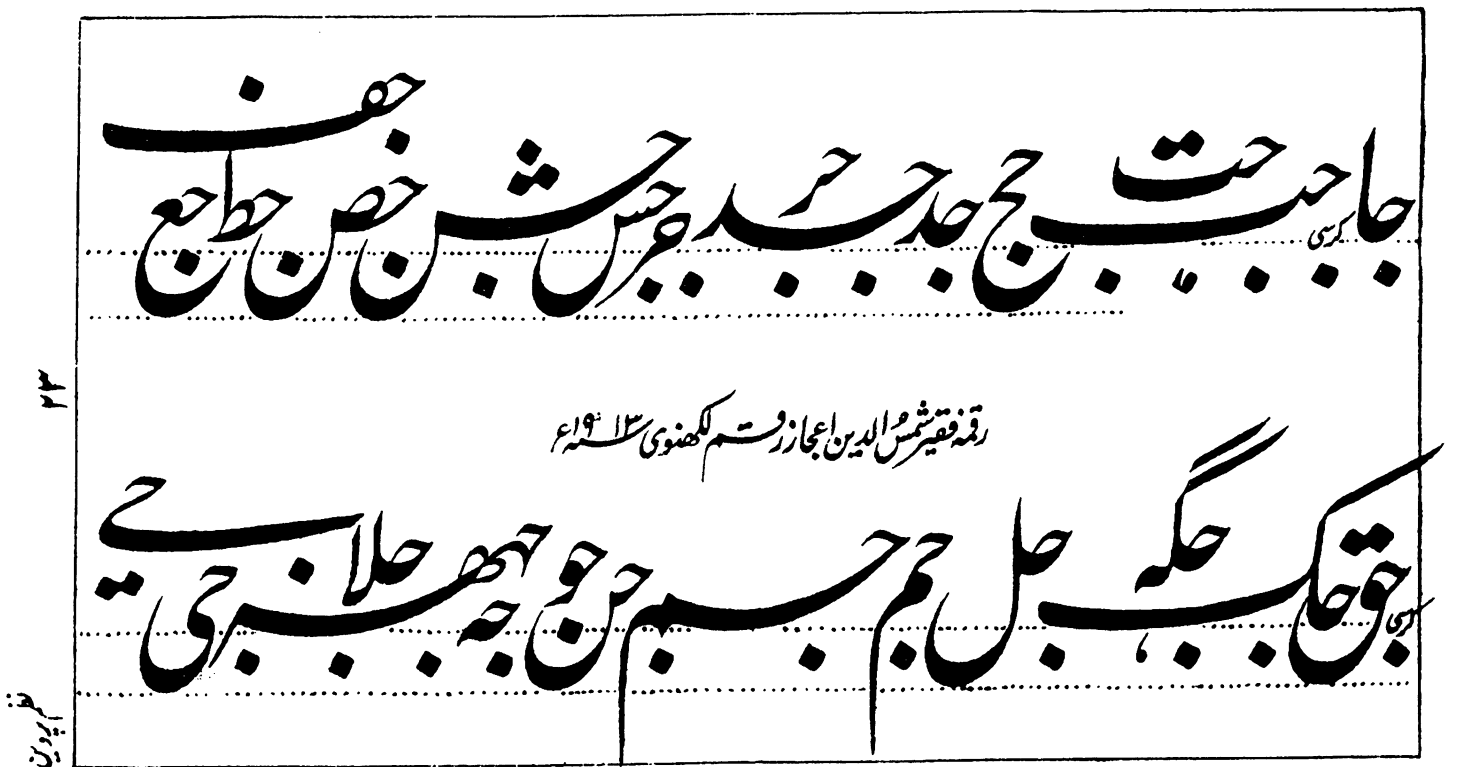 جا جب جت جج جد جد جر جر جس جش جص جط جع جف
کرسی
رقمہ فقیر شمس الدین اعجاز رقم لکھنوی ۱۹۱۳ء
جق جک جگہ جل جم جم جن جو جہ جھر جلا جی جے
کرسی
۲۳
نظم پروین